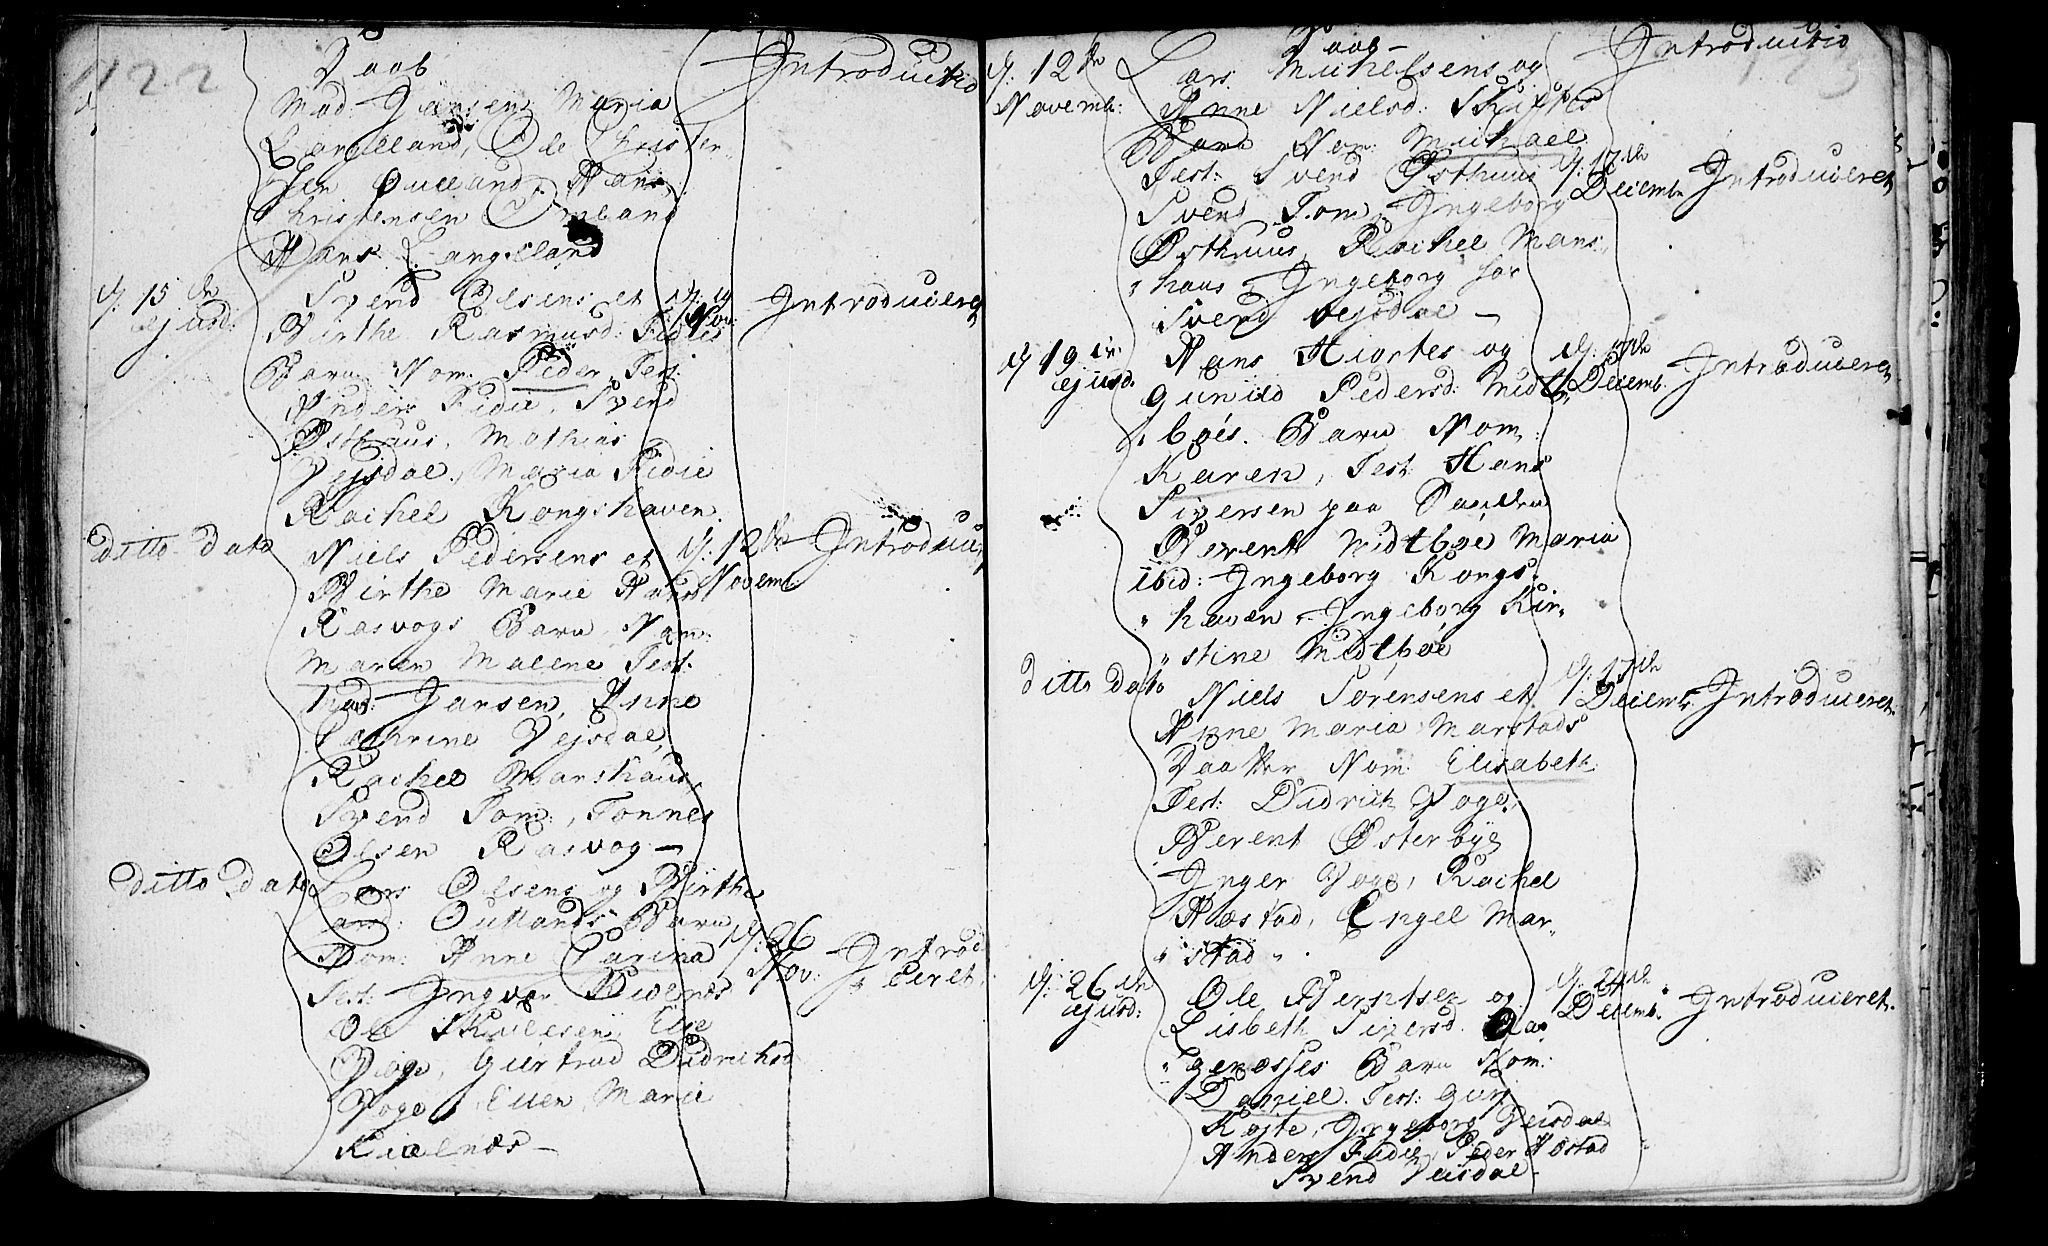 122
Daab
Introductio
Mad: Jansen, Maria
Langelland, Ole Christen-
sen Outland, Hans
Christensen Omland
Hans Langelland
d: 15 de
ejusd:
Svend Olsens et
Birthe Rasmusd: Fidies
Barn Nom: Peder Test:
Anders Fidie, Svend
Osthuus, Mathias
Vejsdal, Maria Fidie
Rachel Kongshaven
Nov:
Introduceret
ditto dato
Niels Pedersens et
Birthe Marie
Rasvogs Barn Nom:
Maren Malene Test:
Mad: Jansen, Anne
Cathrine Vejsdal,
Rachel Manshaus,
Svend Tom:, Tonnes
Olsen Rasvog —
d: 12 de
Novemb:
ditto dato
Lars Olsens og Birthe
Outlands Barn
Nom: Anne Carina
Test: Ingvar Rienæs
Ole Skulesen, Else
Voge, Giertrud Didrichsd
Voge, Ellen Marie
Rienæs —
d: 26
Nov:
Introd
uceret.
Daab —
Introductio
d: 12 de
Novemb:
Lars Michelsens og
Anne Nielsd:
Barn Nom: Michael
Test: Svend Østhuus
Svend Tom, Ingeborg
Østhuus, Rachel Mans-
haus, Ingeborg
Svend Vejsdal —
d: 17 de
Decemb:
Introduceret
d 19 de
ejusd:
Hans Hiortes og
Gunild Pedersd: Midt-
bøes Barn Nom:
Karen, Test: Hans
Siversen paa
Berent Midtbøe Maria
ibid: Ingeborg Kongs-
haven, Ingeborg Kir-
stine Midtbøe
Decemb:
Introduceret
ditto dato
Niels Sørensens et
Anne Maria Marstads
Daatter Nom: Elisabeth
Test: Didrich Voge,
Berent Østerbye
Inger Voge, Rachel
Aastad, Engel Mar-
stad.
d: 17 de
Decemb:
Introduceret.
d: 26 de
ejusd:
Ole Berntsen og
Lisbeth Siversd:
Barn Nom:
Daniel. Test: Guri
Kojte, Ingeborg Veisdal
Anders Fidie, Peder Aastad
Svend Veisdal —
d: 24 de
Decemb.
Introduceret.